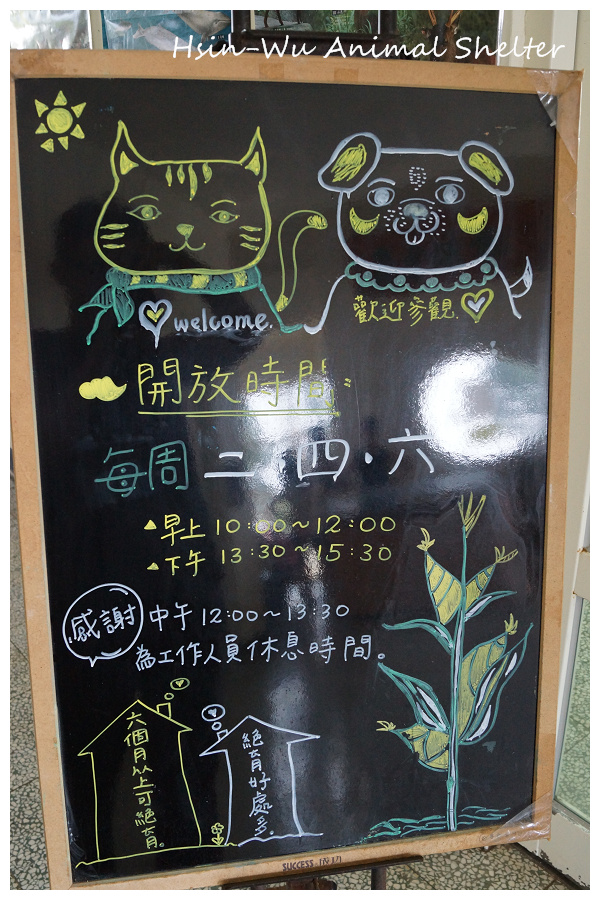 Hsin-Wu Animal Shelter
welcome.
歡迎參觀.
開放時間
每周二.四.六
早上 10:00~12:00
下午 13:30~15:30
感謝
中午 12:00~13:30
為工作人員休息時間。
六個月以上可絕育。
絕育好處多.
SUCCESS 成功